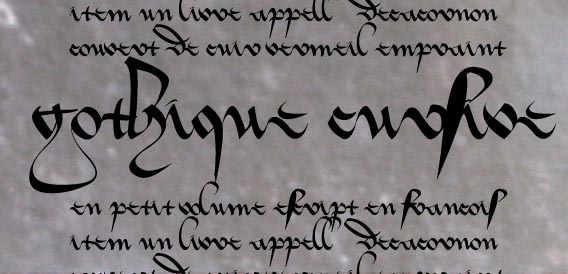 item un livre appell' Decacornon
couvert de cuir vermeil empraint
gothique cursive
en petit volume escript en francois
item un livre appell' Decacornon